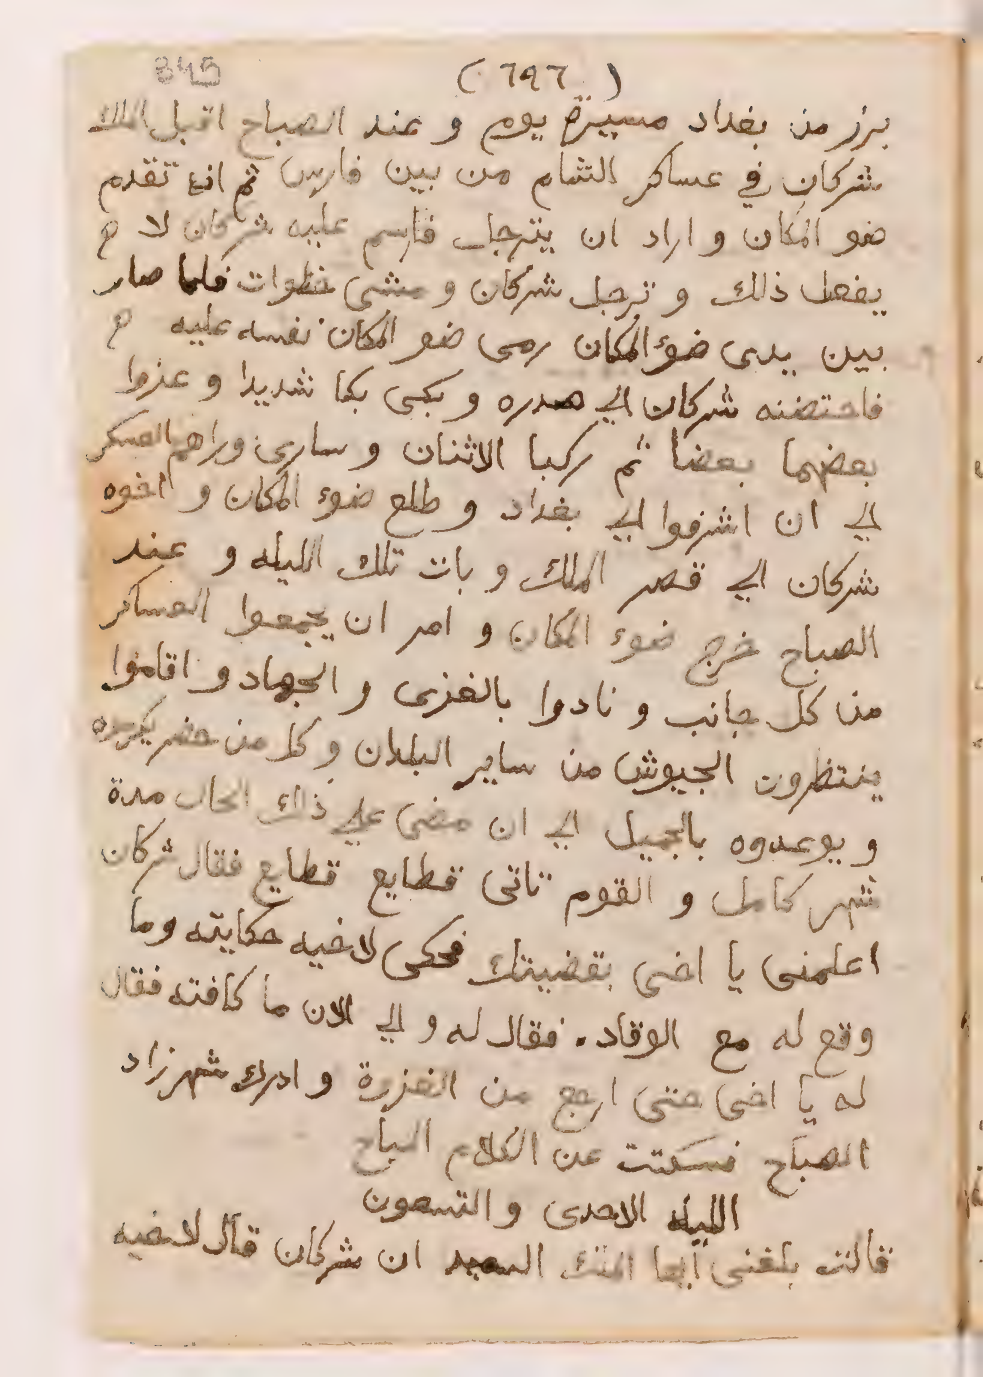 345
( ٦٩٦ )
برز من بغداد مسيرة يوم و عند الصباح اقبل الملك
شركان في عساكر الشام من بين فارس ثم انه تقدم
ضو المكان و اراد ان يترجل فاسم عليه شركان لا
يفعل ذلك و ترجل شركان و مشى خطوات فلما صار
بين يدى ضوء المكان رمى ضو المكان نفسه عليه
فاحتضنه شركان الي صدره و بكى بكا شديدا و عزوا
بعضهما بعضا ثم ركبا الاثنان و سارى وراهم العسكر
الي ان اشرفوا الي بغداد و طلع ضوء المكان و اخوه
شركان الي قصر الملك و بات تلك الليله و عند
الصباح خرج ضوء المكان و امر ان يجمعوا العساكر
من كل جانب و نادوا بالغزى و الجهاد و اقاموا
ينتظرون الجيوش من ساير البلدان و كل من حضر يكرموه
و يوعدوه بالجميل الي ان مضى علي ذلك الحال مدة
شهر كامل و القوم تاتى قطايع قطايع فقال شركان
اعلمنى يا اخى بقضيتك فحكى لاخيه حكايته وما
وقع له مع الوقاد. فقال له و الي الان ما كافته فقال
له يا اخى حتى ارجع من الغزوة و ادرك شهرزاد
الصباح فسكتت عن الكلام المباح
الليله الاحدى و التسعون
قالت بلغنى ايها الملك السعيد ان شركان قال لاخيه